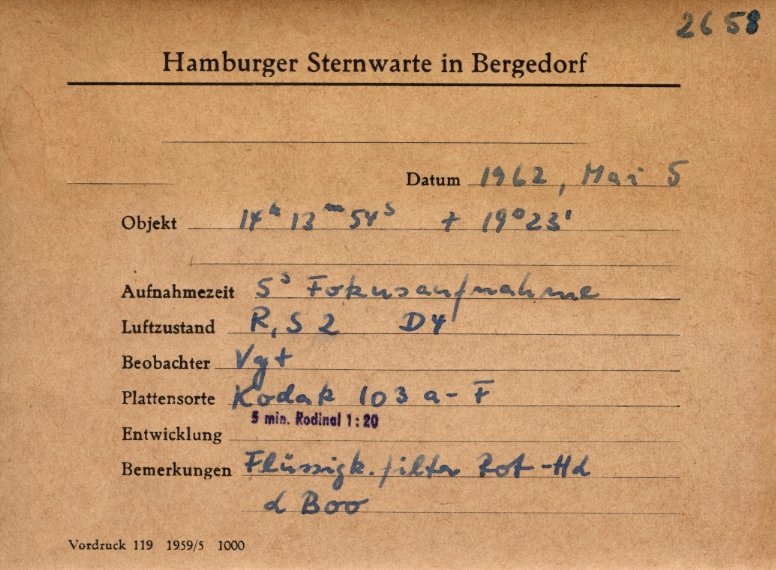 2658
Hamburger Sternwarte in Bergedorf
Datum 1962, Mai 5
Objekt 14ʰ 13ᵐ 54ˢ + 19°23'
Aufnahmezeit 5ˢ Fokusaufnahme
Luftzustand R, S 2 D4
Beobachter Vgt
Plattensorte Kodak 103 a-F
5 min. Rodinal 1:20
Entwicklung
Bemerkungen Flüssigk.filter Rot-Hα
α Boo
Vordruck 119 1959/5 1000